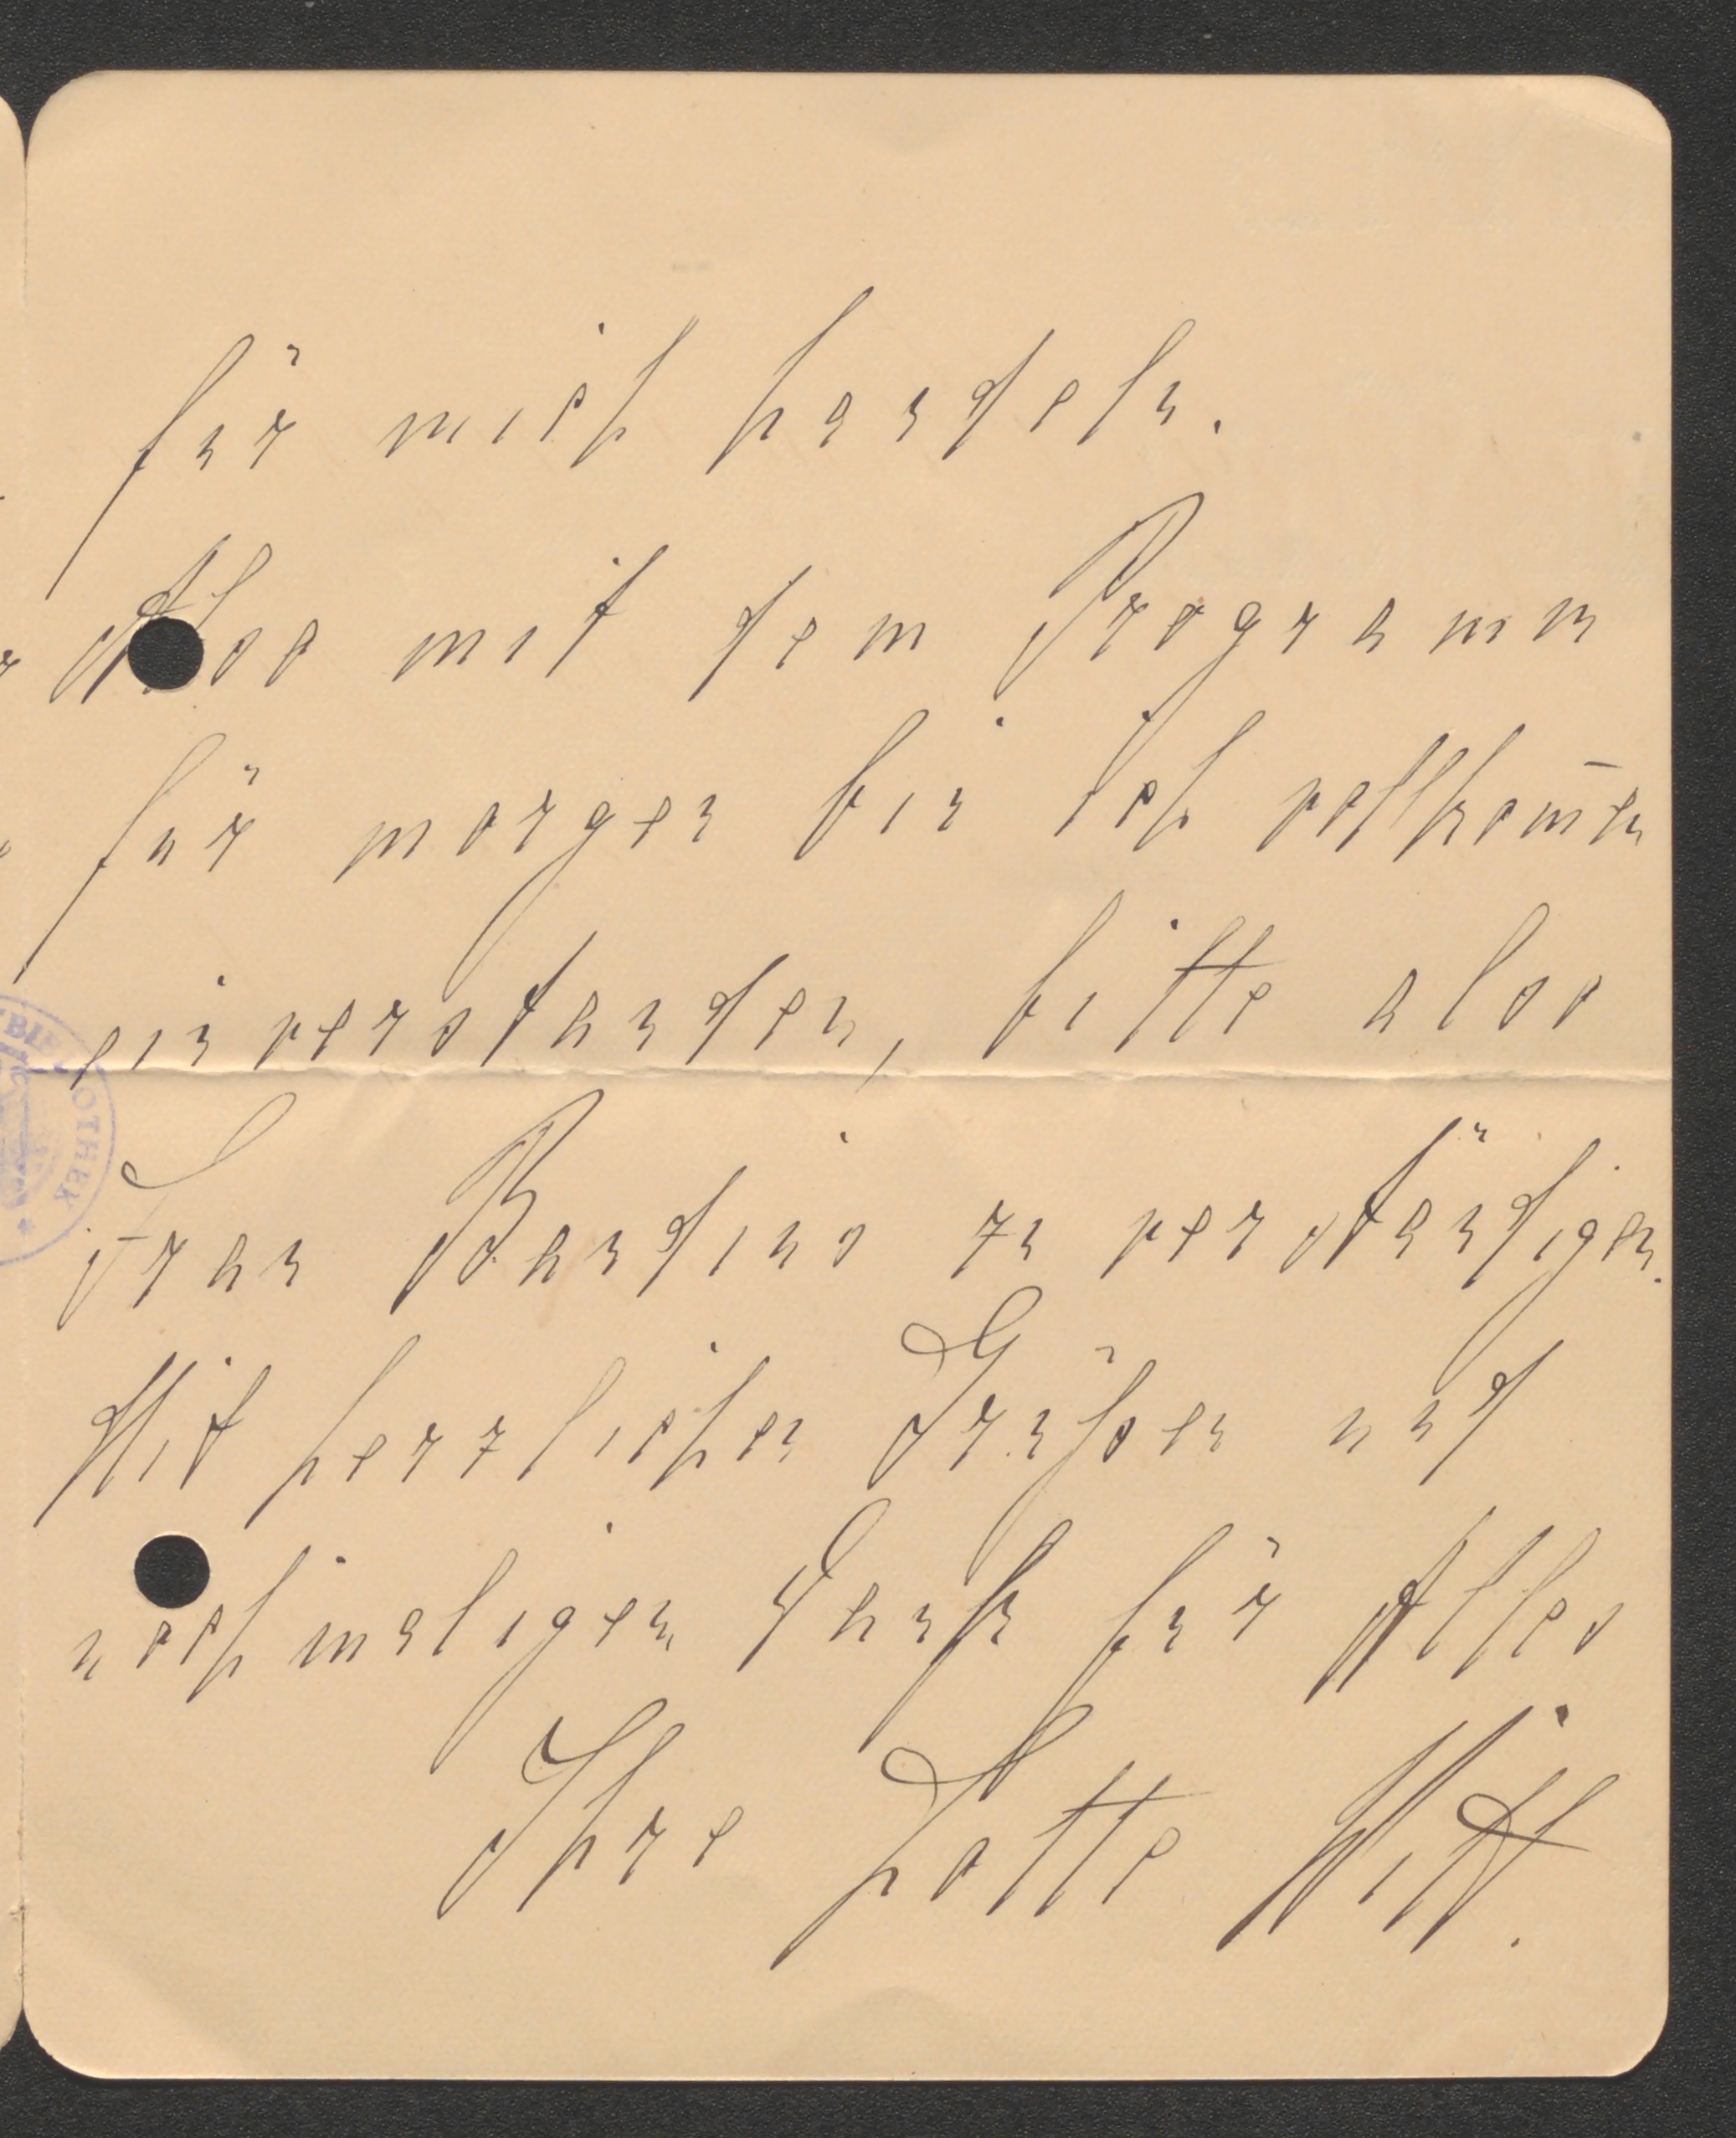 für mich handeln.
Also mit dem Programm
für morgen bin ich vollkom̄en
einverstanden, bitte also
Frau Bandius zu verständigen.
Mit herzlichen Grüßen und
nochmaligen Dank für Alles
Ihre Lotte Witt.